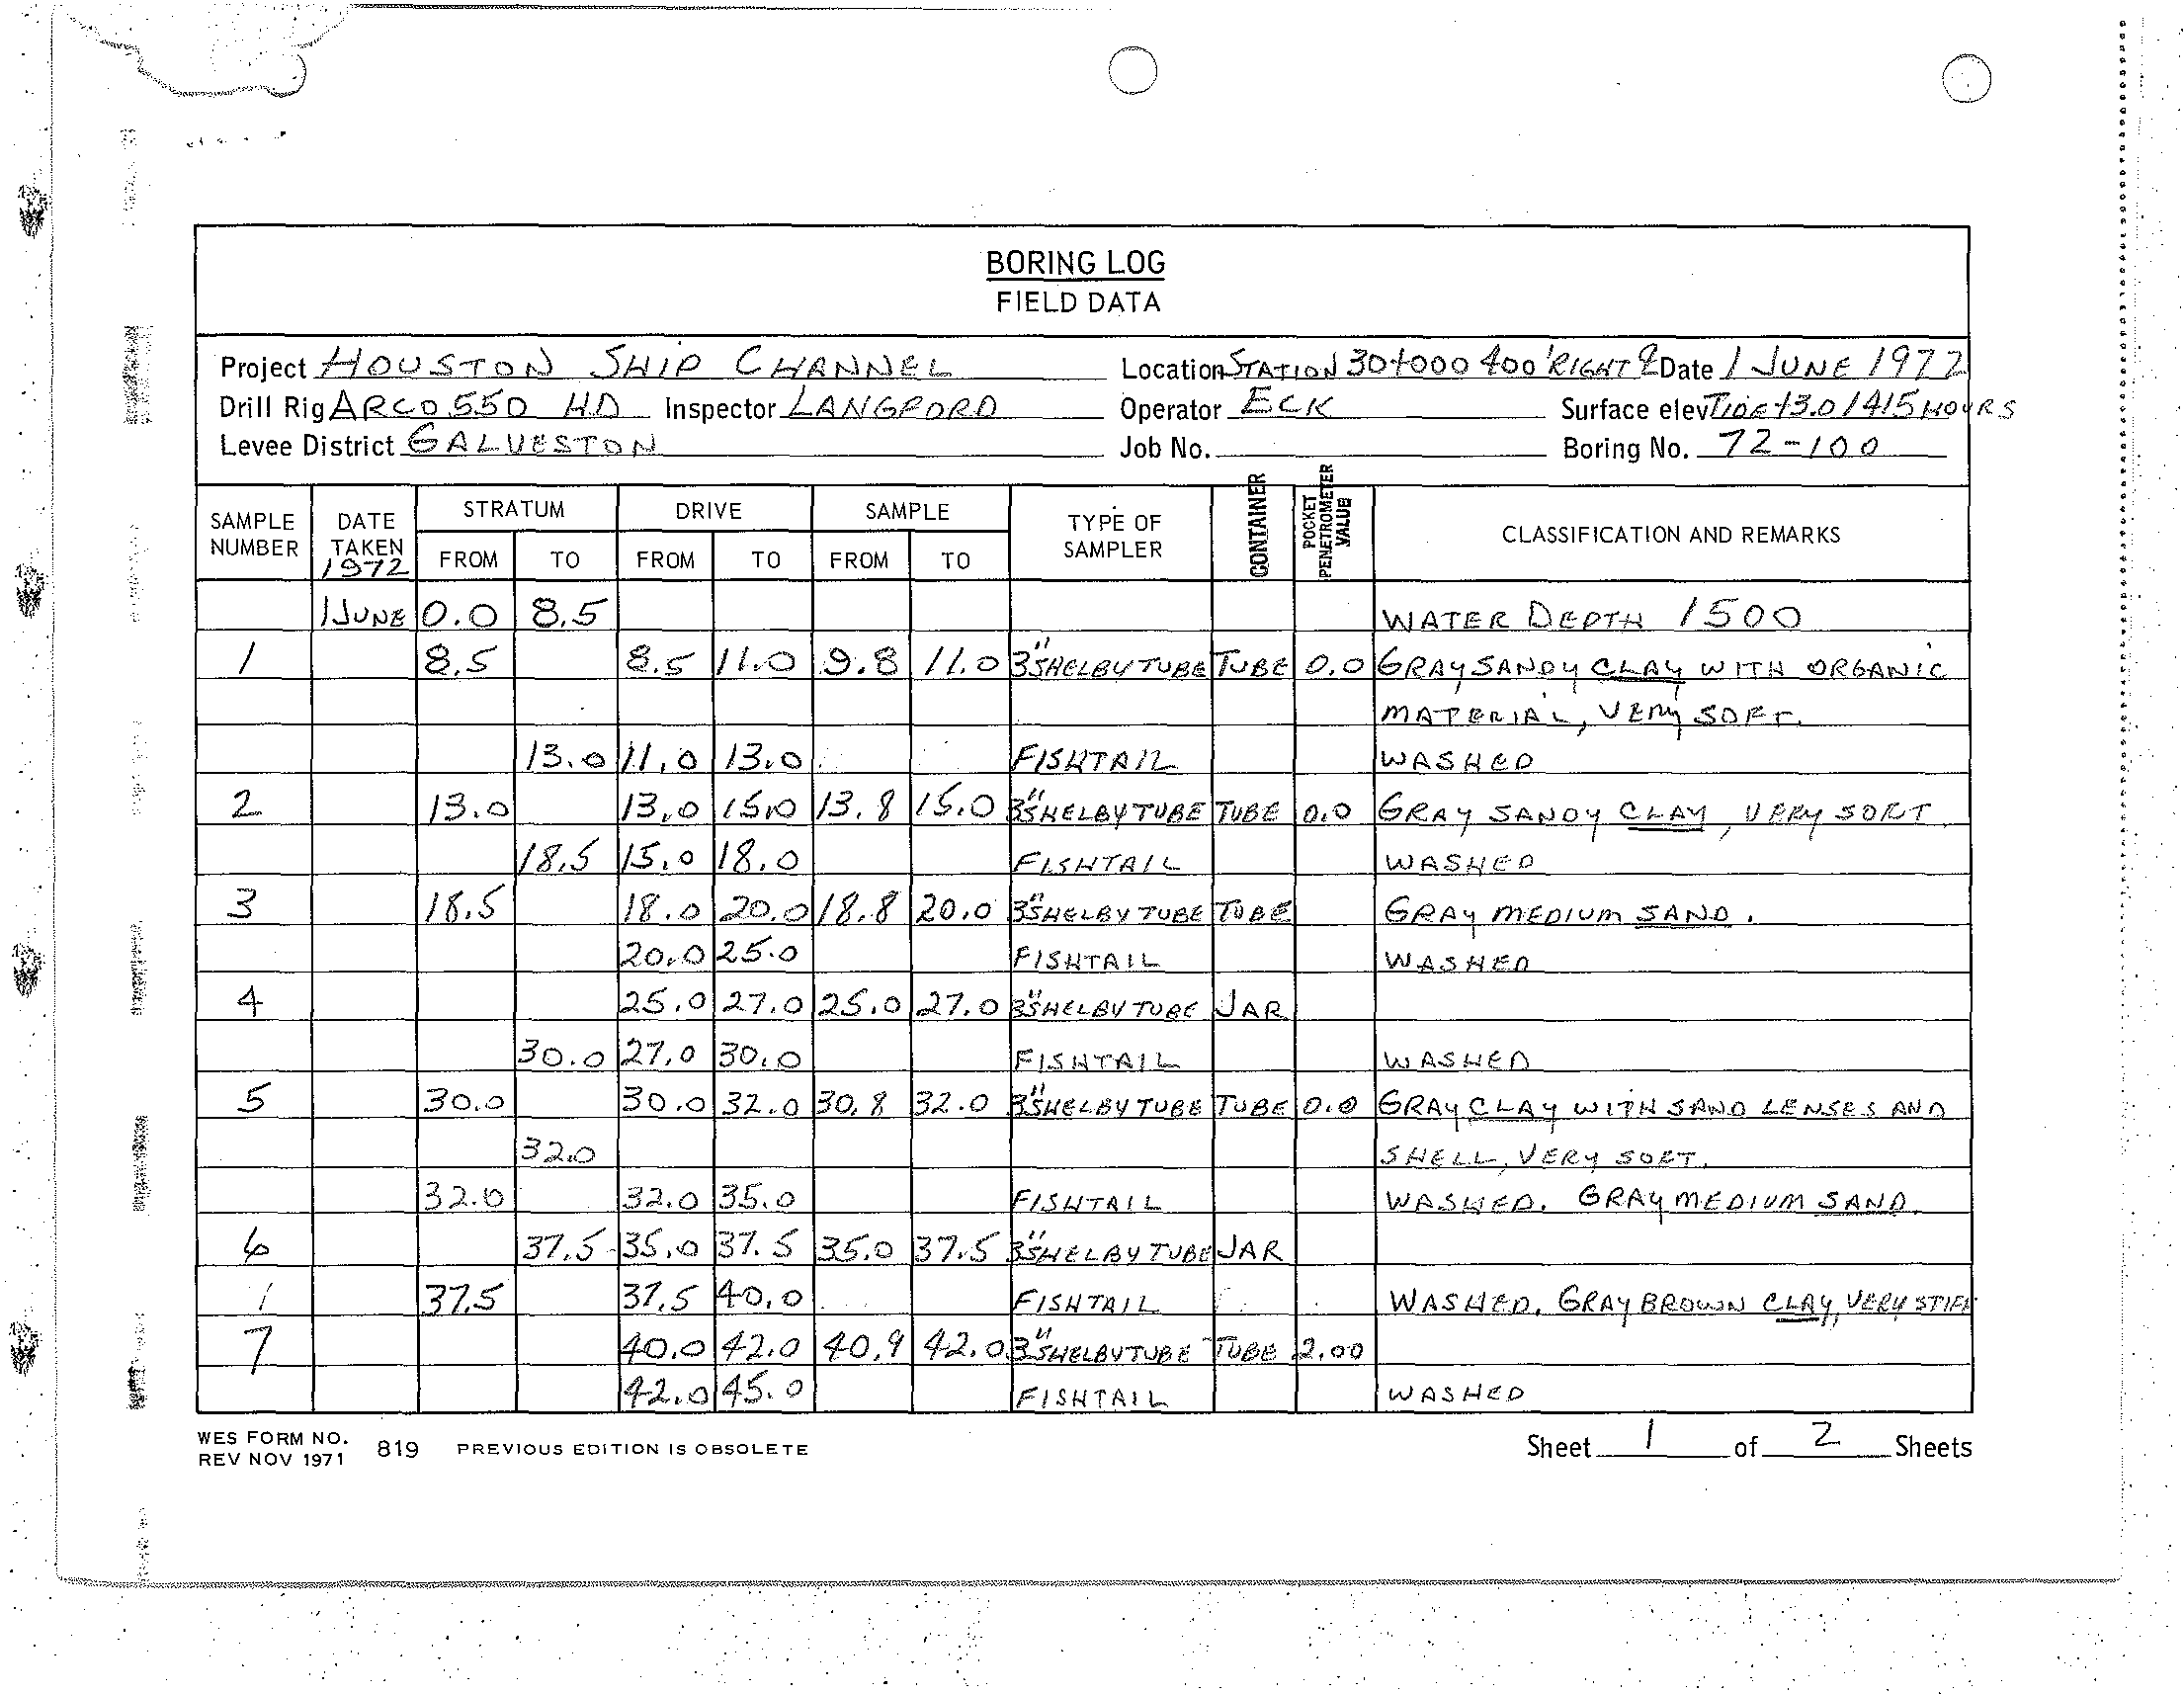 BORING LOG
FIELD DATA
Project HOUSTON SHIP CHANNEL Location STATION 30+000 400' RIGHT ℄ Date 1 JUNE 1972
Drill Rig ARCO 550 HD Inspector LANGFORD Operator ECK Surface elev TIDE +3.0 1415 HOURS
Levee District GALVESTON Job No. Boring No. 72-100
SAMPLE NUMBER DATE TAKEN 1972 STRATUM FROM TO DRIVE FROM TO SAMPLE FROM TO TYPE OF SAMPLER CONTAINER POCKET PENETROMETER VALUE CLASSIFICATION AND REMARKS
1 JUNE 0.0 8.5 WATER DEPTH 1500
1 8.5 8.5 11.0 9.8 11.0 3" SHELBY TUBE TUBE 0.0 GRAY SANDY CLAY WITH ORGANIC
MATERIAL, VERY SOFT.
13.0 11.0 13.0 FISHTAIL WASHED
2 13.0 13.0 15.0 13.8 15.0 3" SHELBY TUBE TUBE 0.0 GRAY SANDY CLAY, VERY SOFT.
18.5 15.0 18.0 FISHTAIL WASHED
3 18.5 18.0 20.0 18.8 20.0 3" SHELBY TUBE TUBE GRAY MEDIUM SAND.
20.0 25.0 FISHTAIL WASHED
4 25.0 27.0 25.0 27.0 3" SHELBY TUBE JAR
30.0 27.0 30.0 FISHTAIL WASHED
5 30.0 30.0 32.0 30.8 32.0 3" SHELBY TUBE TUBE 0.0 GRAY CLAY WITH SAND LENSES AND
32.0 SHELL, VERY SOFT.
32.0 32.0 35.0 FISHTAIL WASHED. GRAY MEDIUM SAND.
6 37.5 35.0 37.5 35.0 37.5 3" SHELBY TUBE JAR
37.5 37.5 40.0 FISHTAIL WASHED. GRAY BROWN CLAY, VERY STIFF
7 40.0 42.0 40.9 42.0 3" SHELBY TUBE TUBE 2.00
42.0 45.0 FISHTAIL WASHED
WES FORM NO. 819 PREVIOUS EDITION IS OBSOLETE Sheet 1 of 2 Sheets
REV NOV 1971